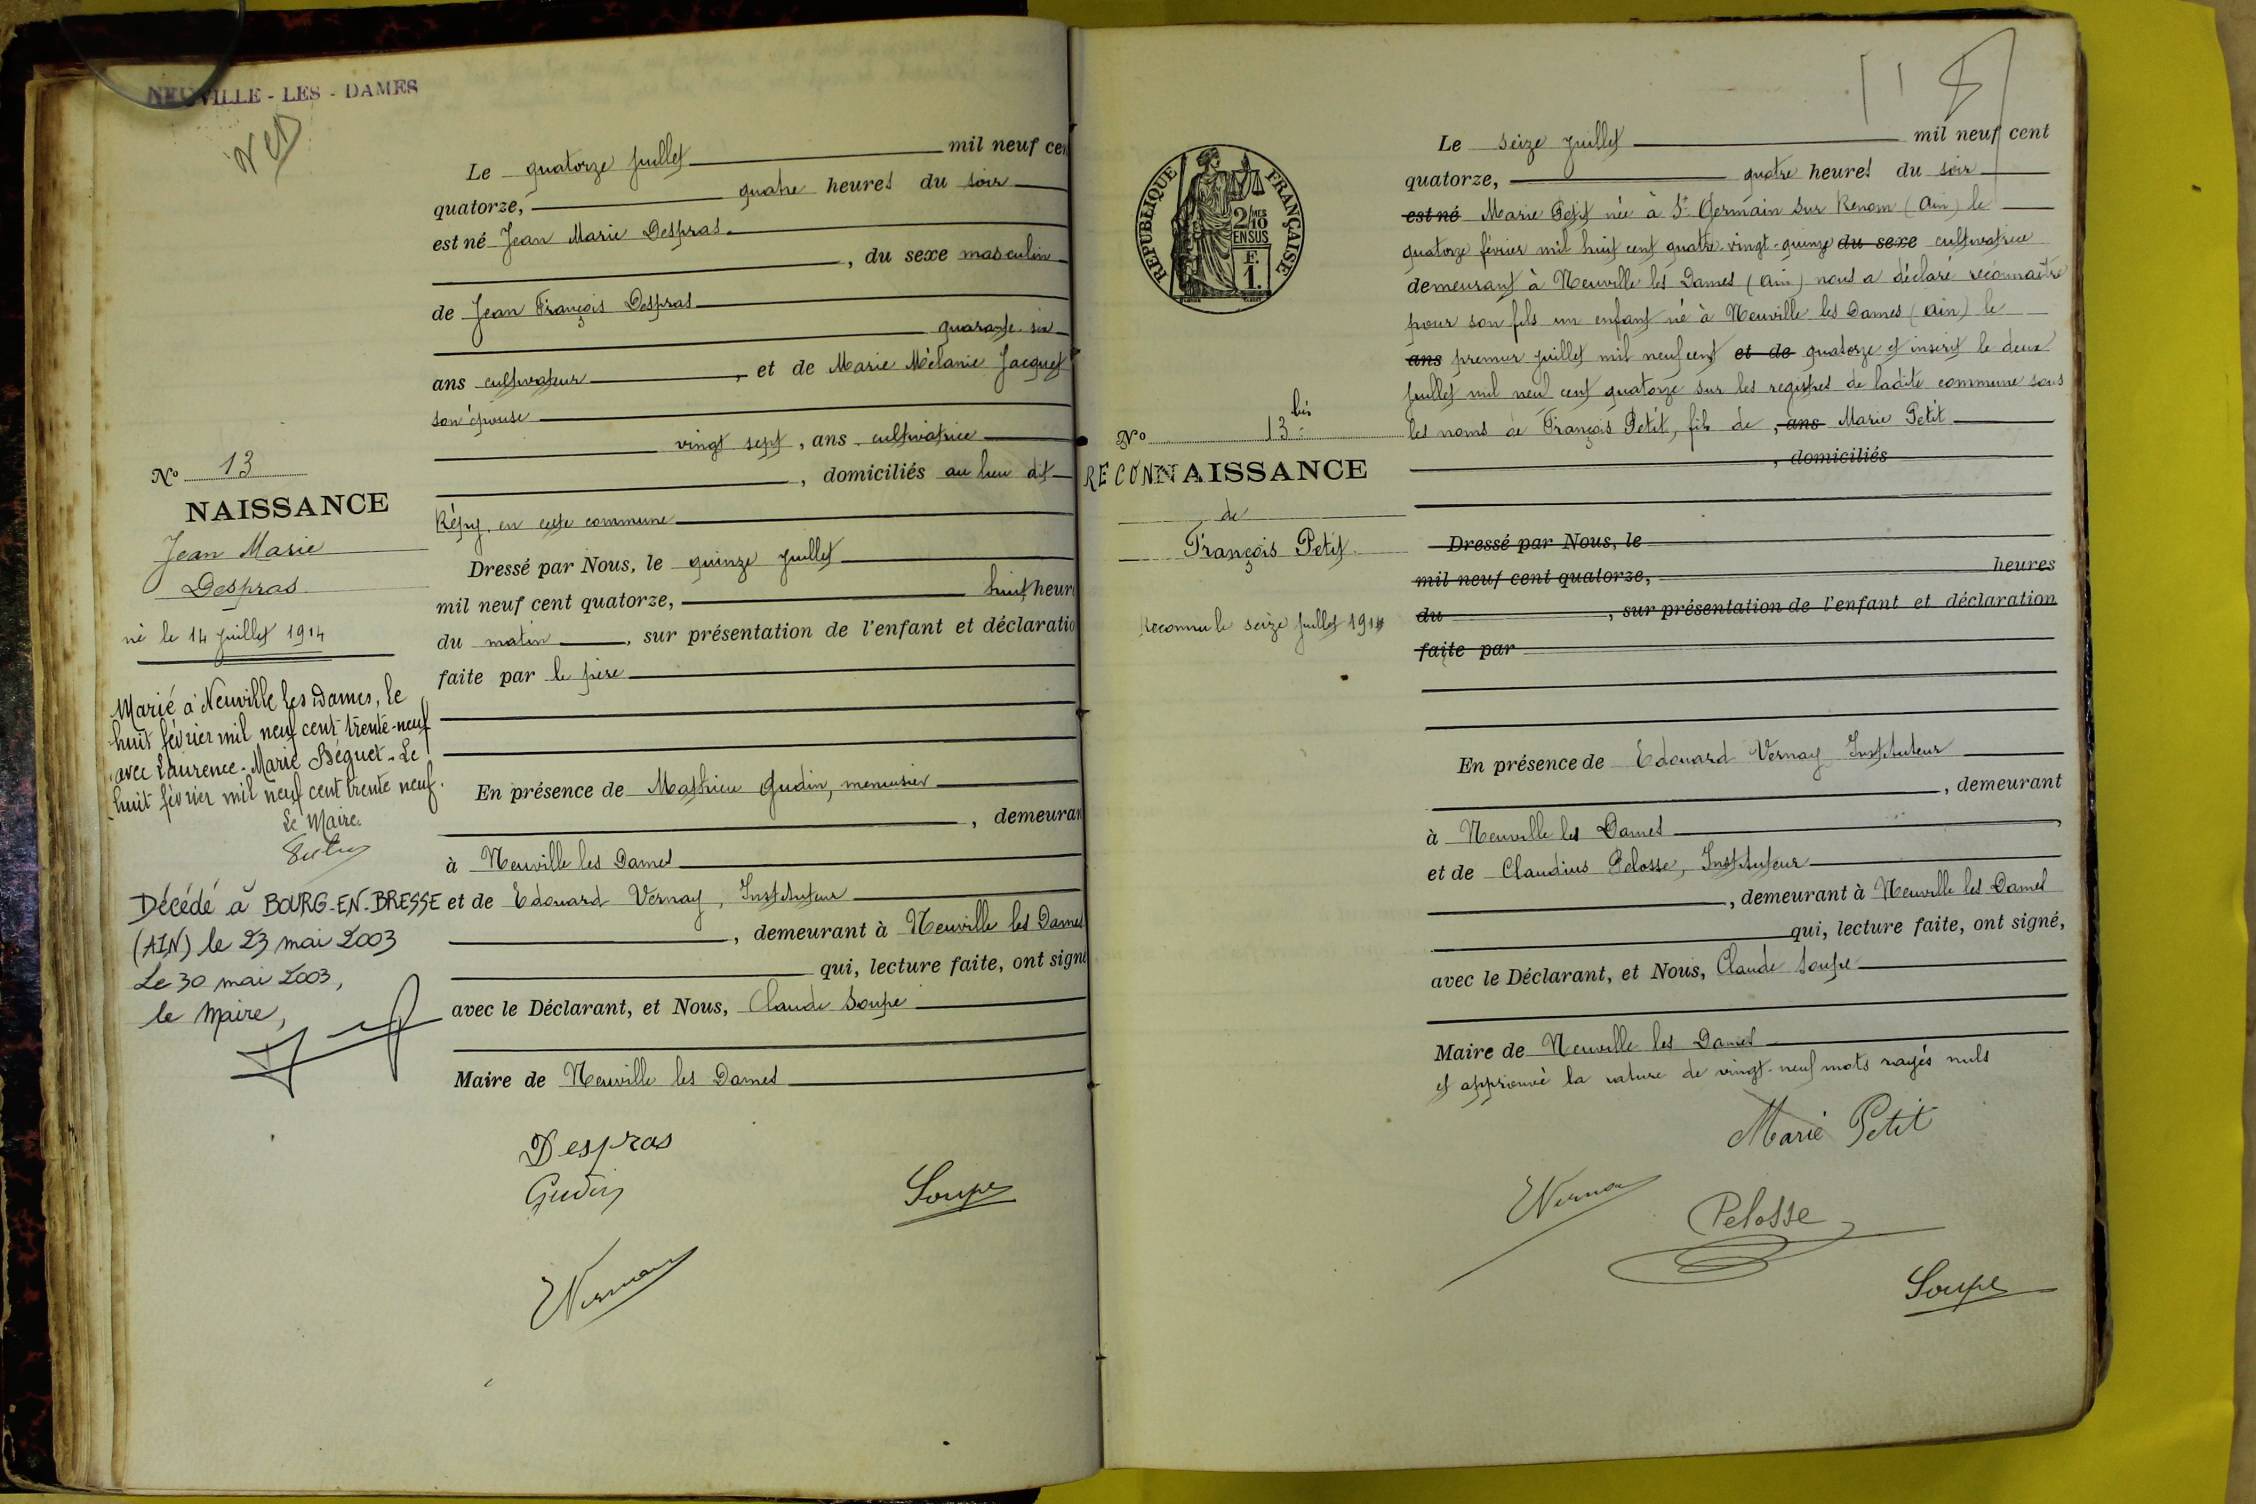 NEUVILLE - LES - DAMES
Le quatorze juillet mil neuf cen
quatorze, quatre heures du soir
est né Jean Marie Despras
, du sexe masculin
de Jean François Despras
quarante six
ans cultivateur , et de Marie Mélanie Jacquet
son épouse
vingt sept , ans cultivatrice
, domiciliés au lieu dit
en cette commune
Dressé par Nous, le quinze juillet
mil neuf cent quatorze, huit heure
du matin , sur présentation de l'enfant et déclaratio
faite par le père
En présence de Mathieu Gudin, menuisier
, demeuran
à Neuville les Dames
et de Edouard Vernay, Instituteur
, demeurant à Neuville les Dames
qui, lecture faite, ont signé
avec le Déclarant, et Nous, Claude Soupe
Maire de Neuville les Dames
Despras
Gudin
Soupe
EVernay
No 13
NAISSANCE
Jean Marie
Despras
né le 14 juillet 1914
Marié à Neuville les Dames, le
huit février mil neuf cent trente-neuf
avec Laurence-Marie Béguet - Le
huit février mil neuf cent trente neuf.
Le Maire
Décédé à BOURG-EN-BRESSE
(AIN) le 23 mai 2003
Le 30 mai 2003,
le Maire,
RÉPUBLIQUE FRANÇAISE
2/10 MES
EN SUS
F.
1.
No 13 bis
RECONNAISSANCE
de
François Petit
Reconnu le seize juillet 1914
Le seize juillet mil neuf cent
quatorze, quatre heures du soir
est né Marie Petit née à St Germain sur Renom (Ain) le
quatorze février mil huit cent quatre-vingt-quinze du sexe cultivatrice
demeurant à Neuville les Dames (Ain) nous a déclaré reconnaître
pour son fils un enfant né à Neuville les Dames (Ain) le
ans premier juillet mil neuf cent et de quatorze et inscrit le deux
juillet mil neuf cent quatorze sur les registres de ladite commune sous
les noms de François Petit, fils de , ans Marie Petit
, domiciliés
Dressé par Nous, le
mil neuf cent quatorze, heures
du , sur présentation de l'enfant et déclaration
faite par
En présence de Edouard Vernay Instituteur
, demeurant
à Neuville les Dames
et de Claudius Pelosse, Instituteur
, demeurant à Neuville les Dames
qui, lecture faite, ont signé,
avec le Déclarant, et Nous, Claude Soupe
Maire de Neuville les Dames
et approuvé la rature de vingt-neuf mots rayés nuls
Marie Petit
EVernay
Pelosse
Soupe